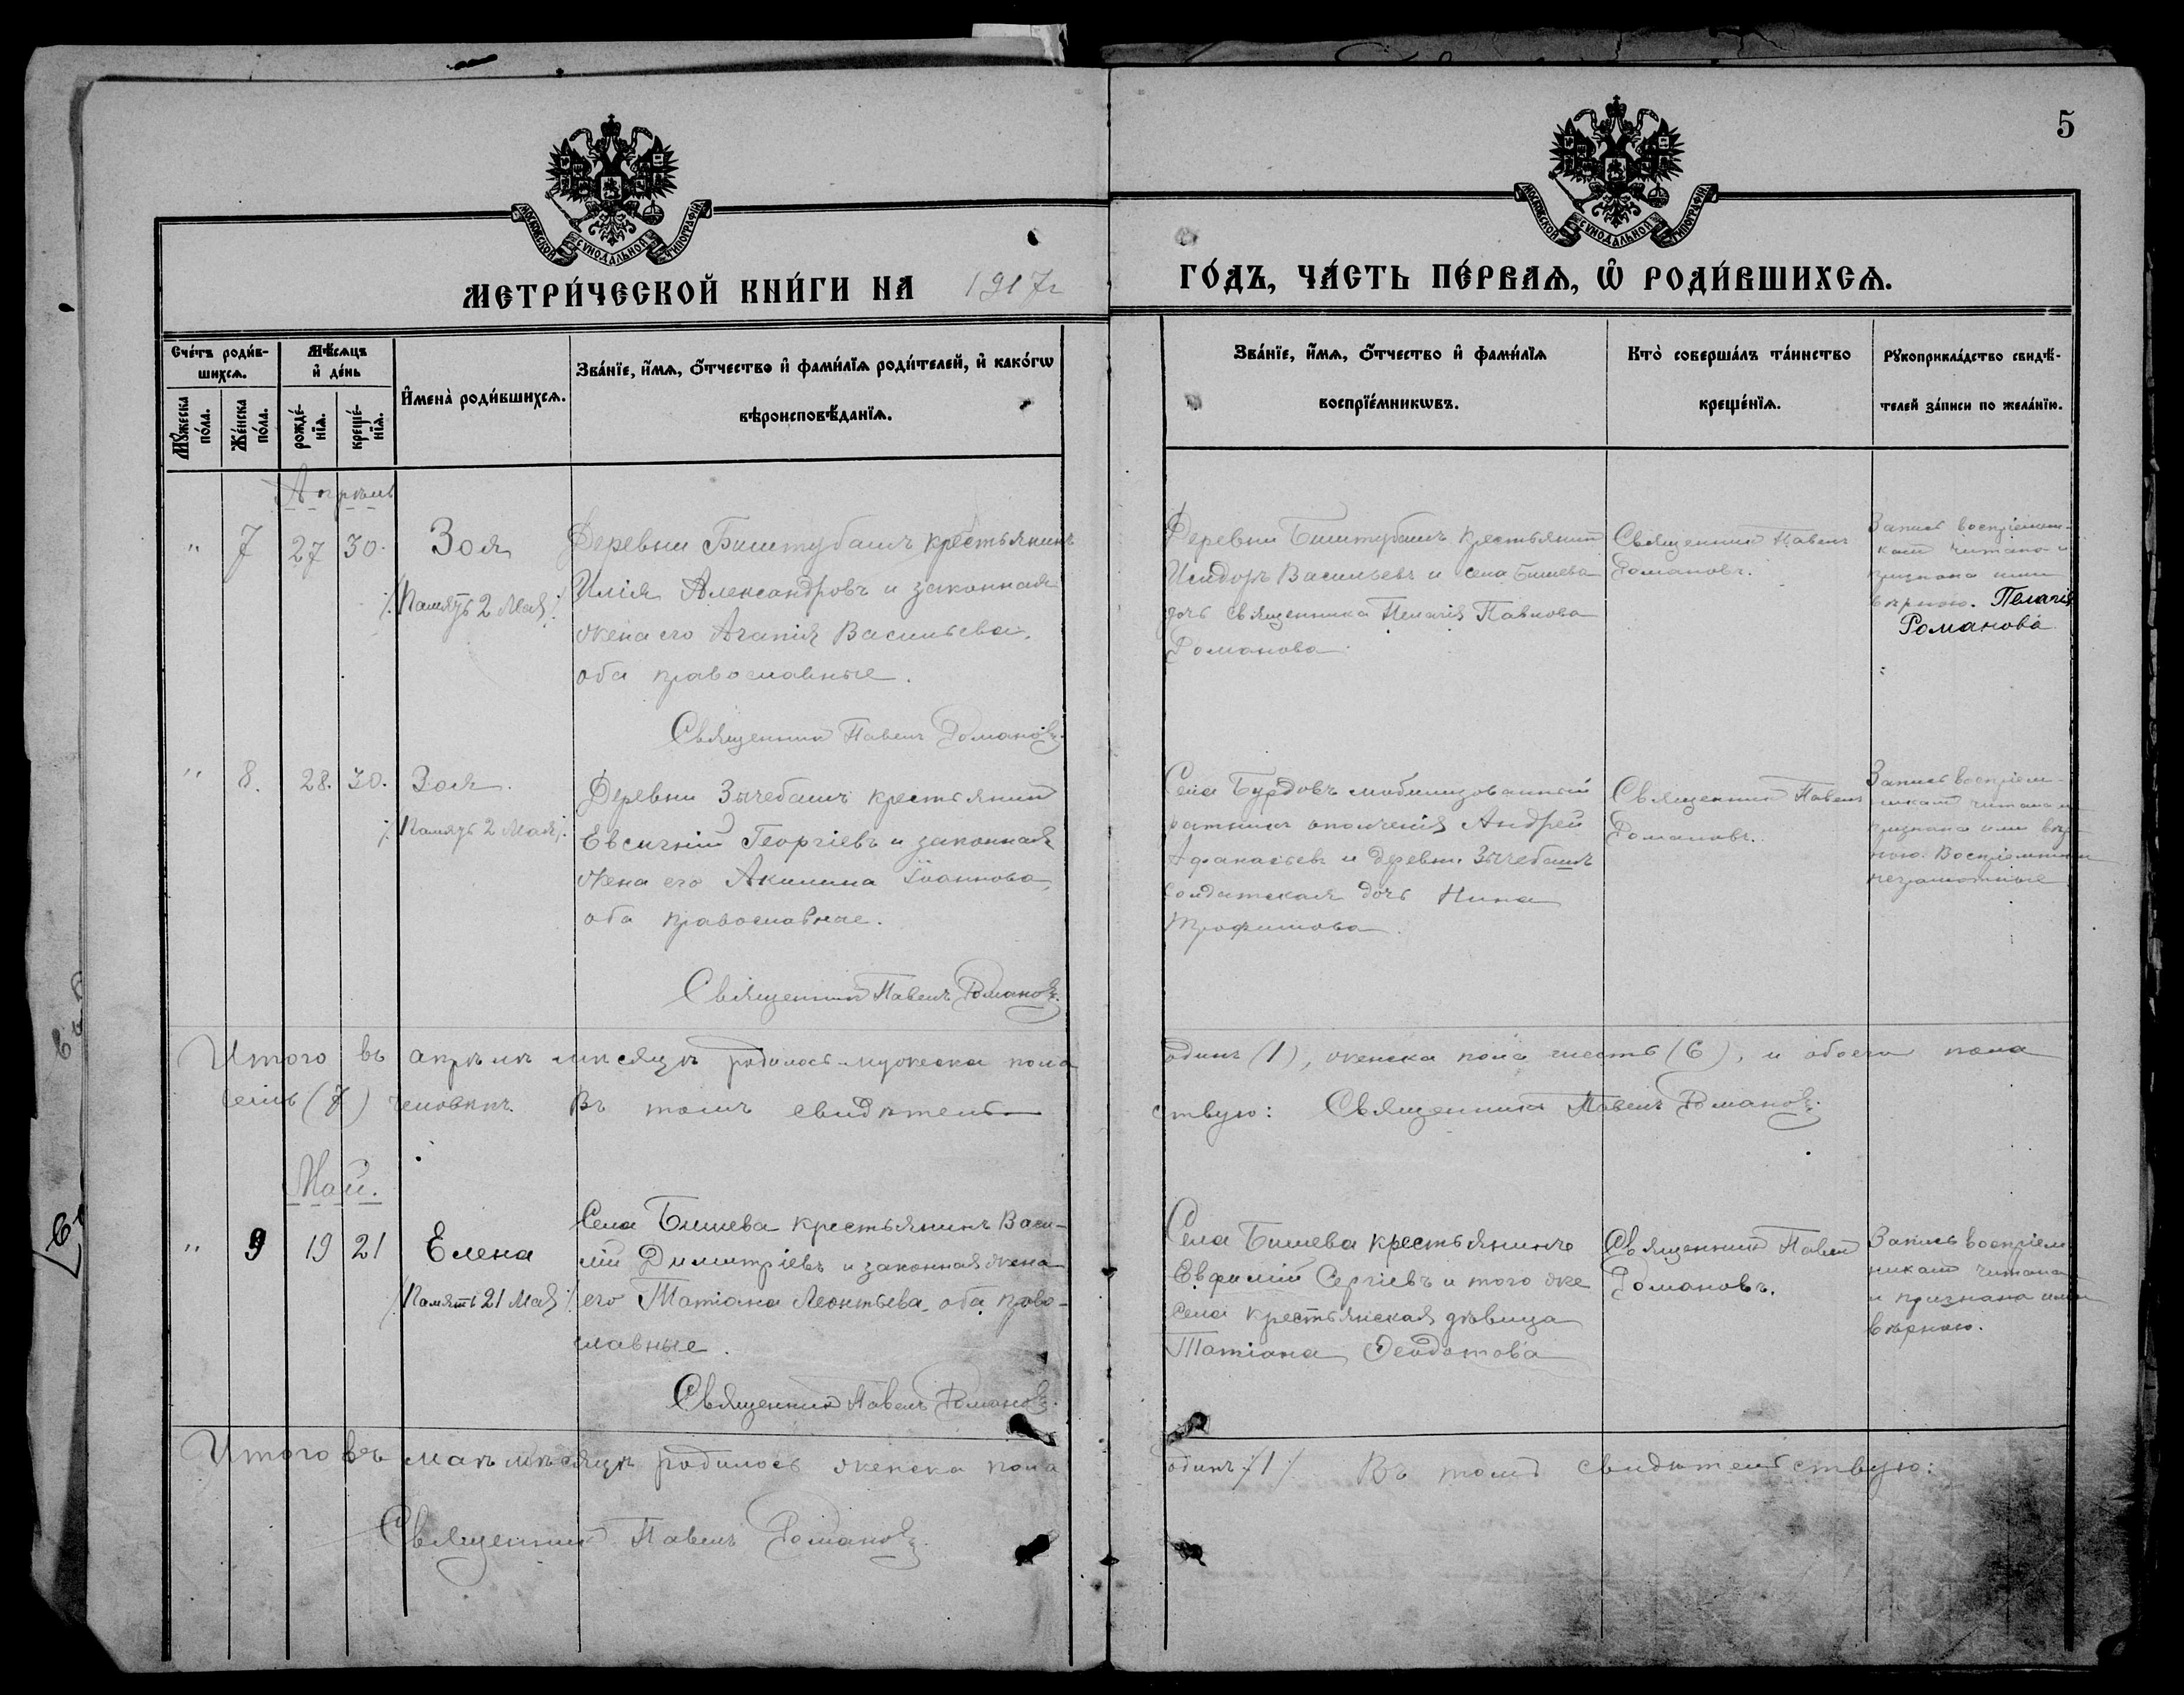 5
МОСКОВСКОЙ СѴНОДАЛЬНОЙ ТИПОГРАФІИ
МОСКОВСКОЙ СѴНОДАЛЬНОЙ ТИПОГРАФІИ
МЕТРИ́ЧЕСКОЙ КНИ́ГИ НА 1917 г
ГО́ДЪ, ЧА́СТЬ ПЕ́РВАѦ, Ѡ҆ РОДИ́ВШИХСѦ.
Сче́тъ роди́в-
шихсѧ.
Мѣ́сѧцъ
и҆ де́нь
Мꙋ́жеска
по́ла.
Же́нска
по́ла.
рожде́-
нїѧ.
креще́-
нїѧ.
И҆мена̀ роди́вшихсѧ.
Зва́нїе, и҆́мѧ, ѻ҆́тчество и҆ фами́лїѧ роди́телей, и҆ како́гѡ
вѣроисповѣ́данїѧ.
Зва́нїе, и҆́мѧ, ѻ҆́тчество и҆ фами́лїѧ
воспрїе́мникѡвъ.
Кто̀ соверша́лъ та́инство
креще́нїѧ.
Рꙋкоприкла́дство свидѣ́-
телей за́писи по жела́нїю.
Апрѣль
" 7 27 30. Зоя
/Память 2 Мая/
Деревни Биштубашъ крестьянинъ
Илія Александровъ и законная
жена его Агапія Васильева,
оба православные.
Священникъ Павелъ Романовъ.
Деревни Биштубашъ крестьянинъ
Исидоръ Васильевъ и села Бишева
дочь священника Пелагія Павлова
Романова.
Священникъ Павелъ
Романовъ.
Запись воспріемни-
камъ читана и
признана ими
вѣрною. Пелагія
Романова
" 8. 28. 30. Зоя.
/Память 2 Мая/.
Деревни Зычебашъ крестьянинъ
Евсигній Георгіевъ и законная
жена его Акилина Іоаннова,
оба православные.
Священникъ Павелъ Романовъ.
Села Бурдовъ мобилизованный
ратникъ ополченія Андрей
Афанасьевъ и деревни Зычебашъ
солдатская дочь Нина
Трофимова.
Священникъ Павелъ
Романовъ.
Запись воспріем-
никамъ читана и
признана ими вѣр-
ною. Воспріемники
неграмотные
Итого въ апрѣлѣ мѣсяцѣ родилось мужеска пола
одинъ (1), женска пола шесть (6), и обоего пола
семь (7) человѣкъ. Въ томъ свидѣтель-
ствую: Священникъ Павелъ Романовъ.
Май.
" 9 19 21 Елена
/Память 21 Мая/
Села Бишева крестьянинъ Васи-
лій Димитріевъ и законная жена
его Татіана Леонтьева, оба право-
славные.
Священникъ Павелъ Романовъ.
Села Бишева крестьянинъ
Евфимій Сергіевъ и того же
села крестьянская дѣвица
Татіана Ѳеодотова
Священникъ Павелъ
Романовъ.
Запись воспріем
никамъ читана
и признана ими
вѣрною.
Итого въ маѣ мѣсяцѣ родилось женска пола
одинъ /1/ Въ томъ свидѣтельствую:
Священникъ Павелъ Романовъ.